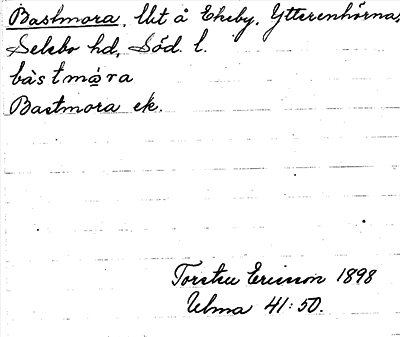 Bastmora, lht å Ekeby, Ytterenhörna,
Selebo hd, Söd l.
bàstmo̲ra
Bastmora ek.
Torsten Ericsson 1898
Ulma 41:50.